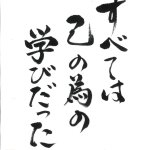 すべては
己の為の
学びだった